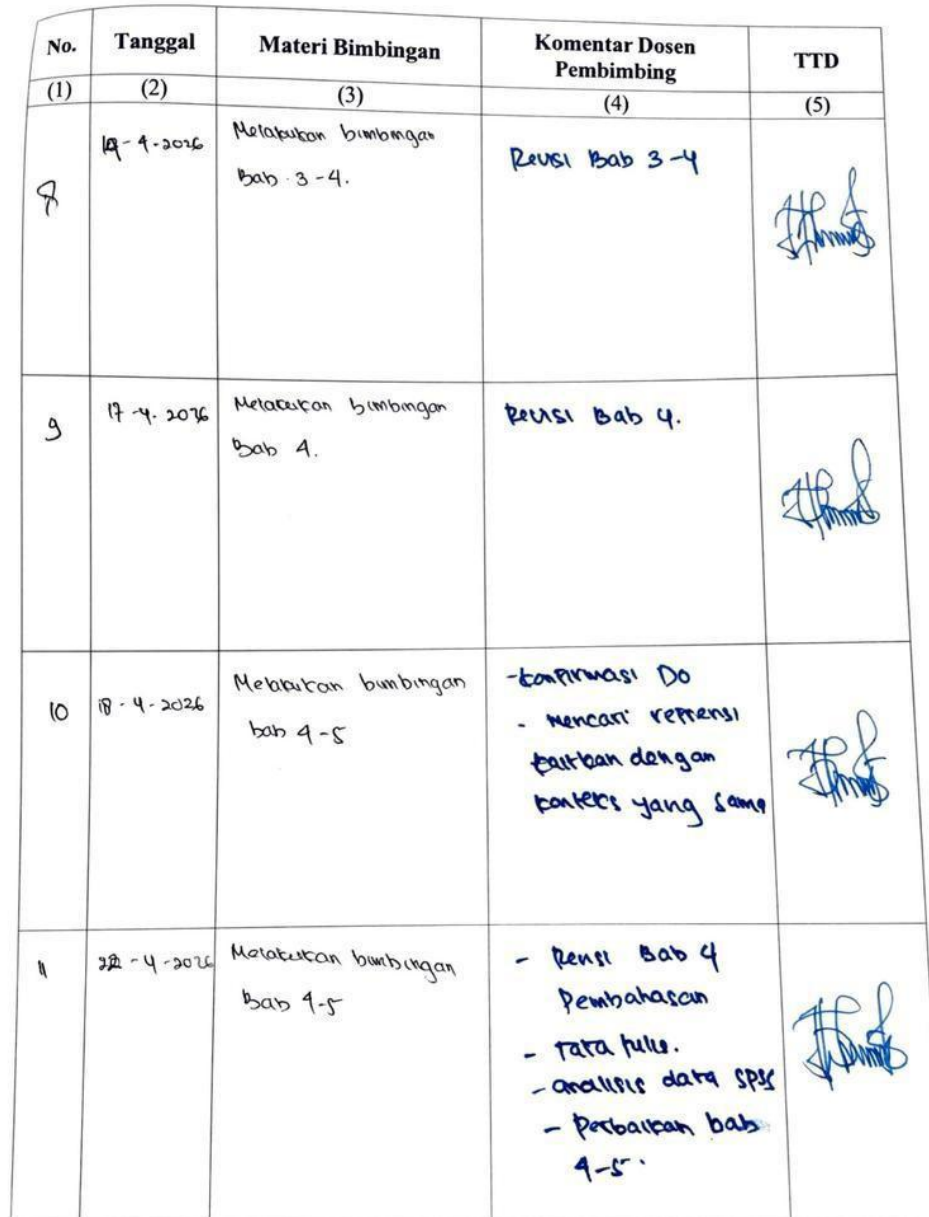 No. Tanggal Materi Bimbingan Komentar Dosen Pembimbing TTD
(1) (2) (3) (4) (5)
8 -4-2026 Melakukan bimbingan Revisi Bab 3-4
Bab 3-4.
9 17-4-2026 Melakukan bimbingan Revisi Bab 4.
Bab 4.
10 18-4-2026 Melakukan bimbingan -Konfirmasi DO
bab 4-5 - Mencari refrensi
kaitkan dengan
konteks yang sama
11 22-4-2026 Melakukan bimbingan - Revisi Bab 4
Bab 4-5 Pembahasan
- Tata tulis.
- analisis data SPSS
- Perbaikan bab
4-5.